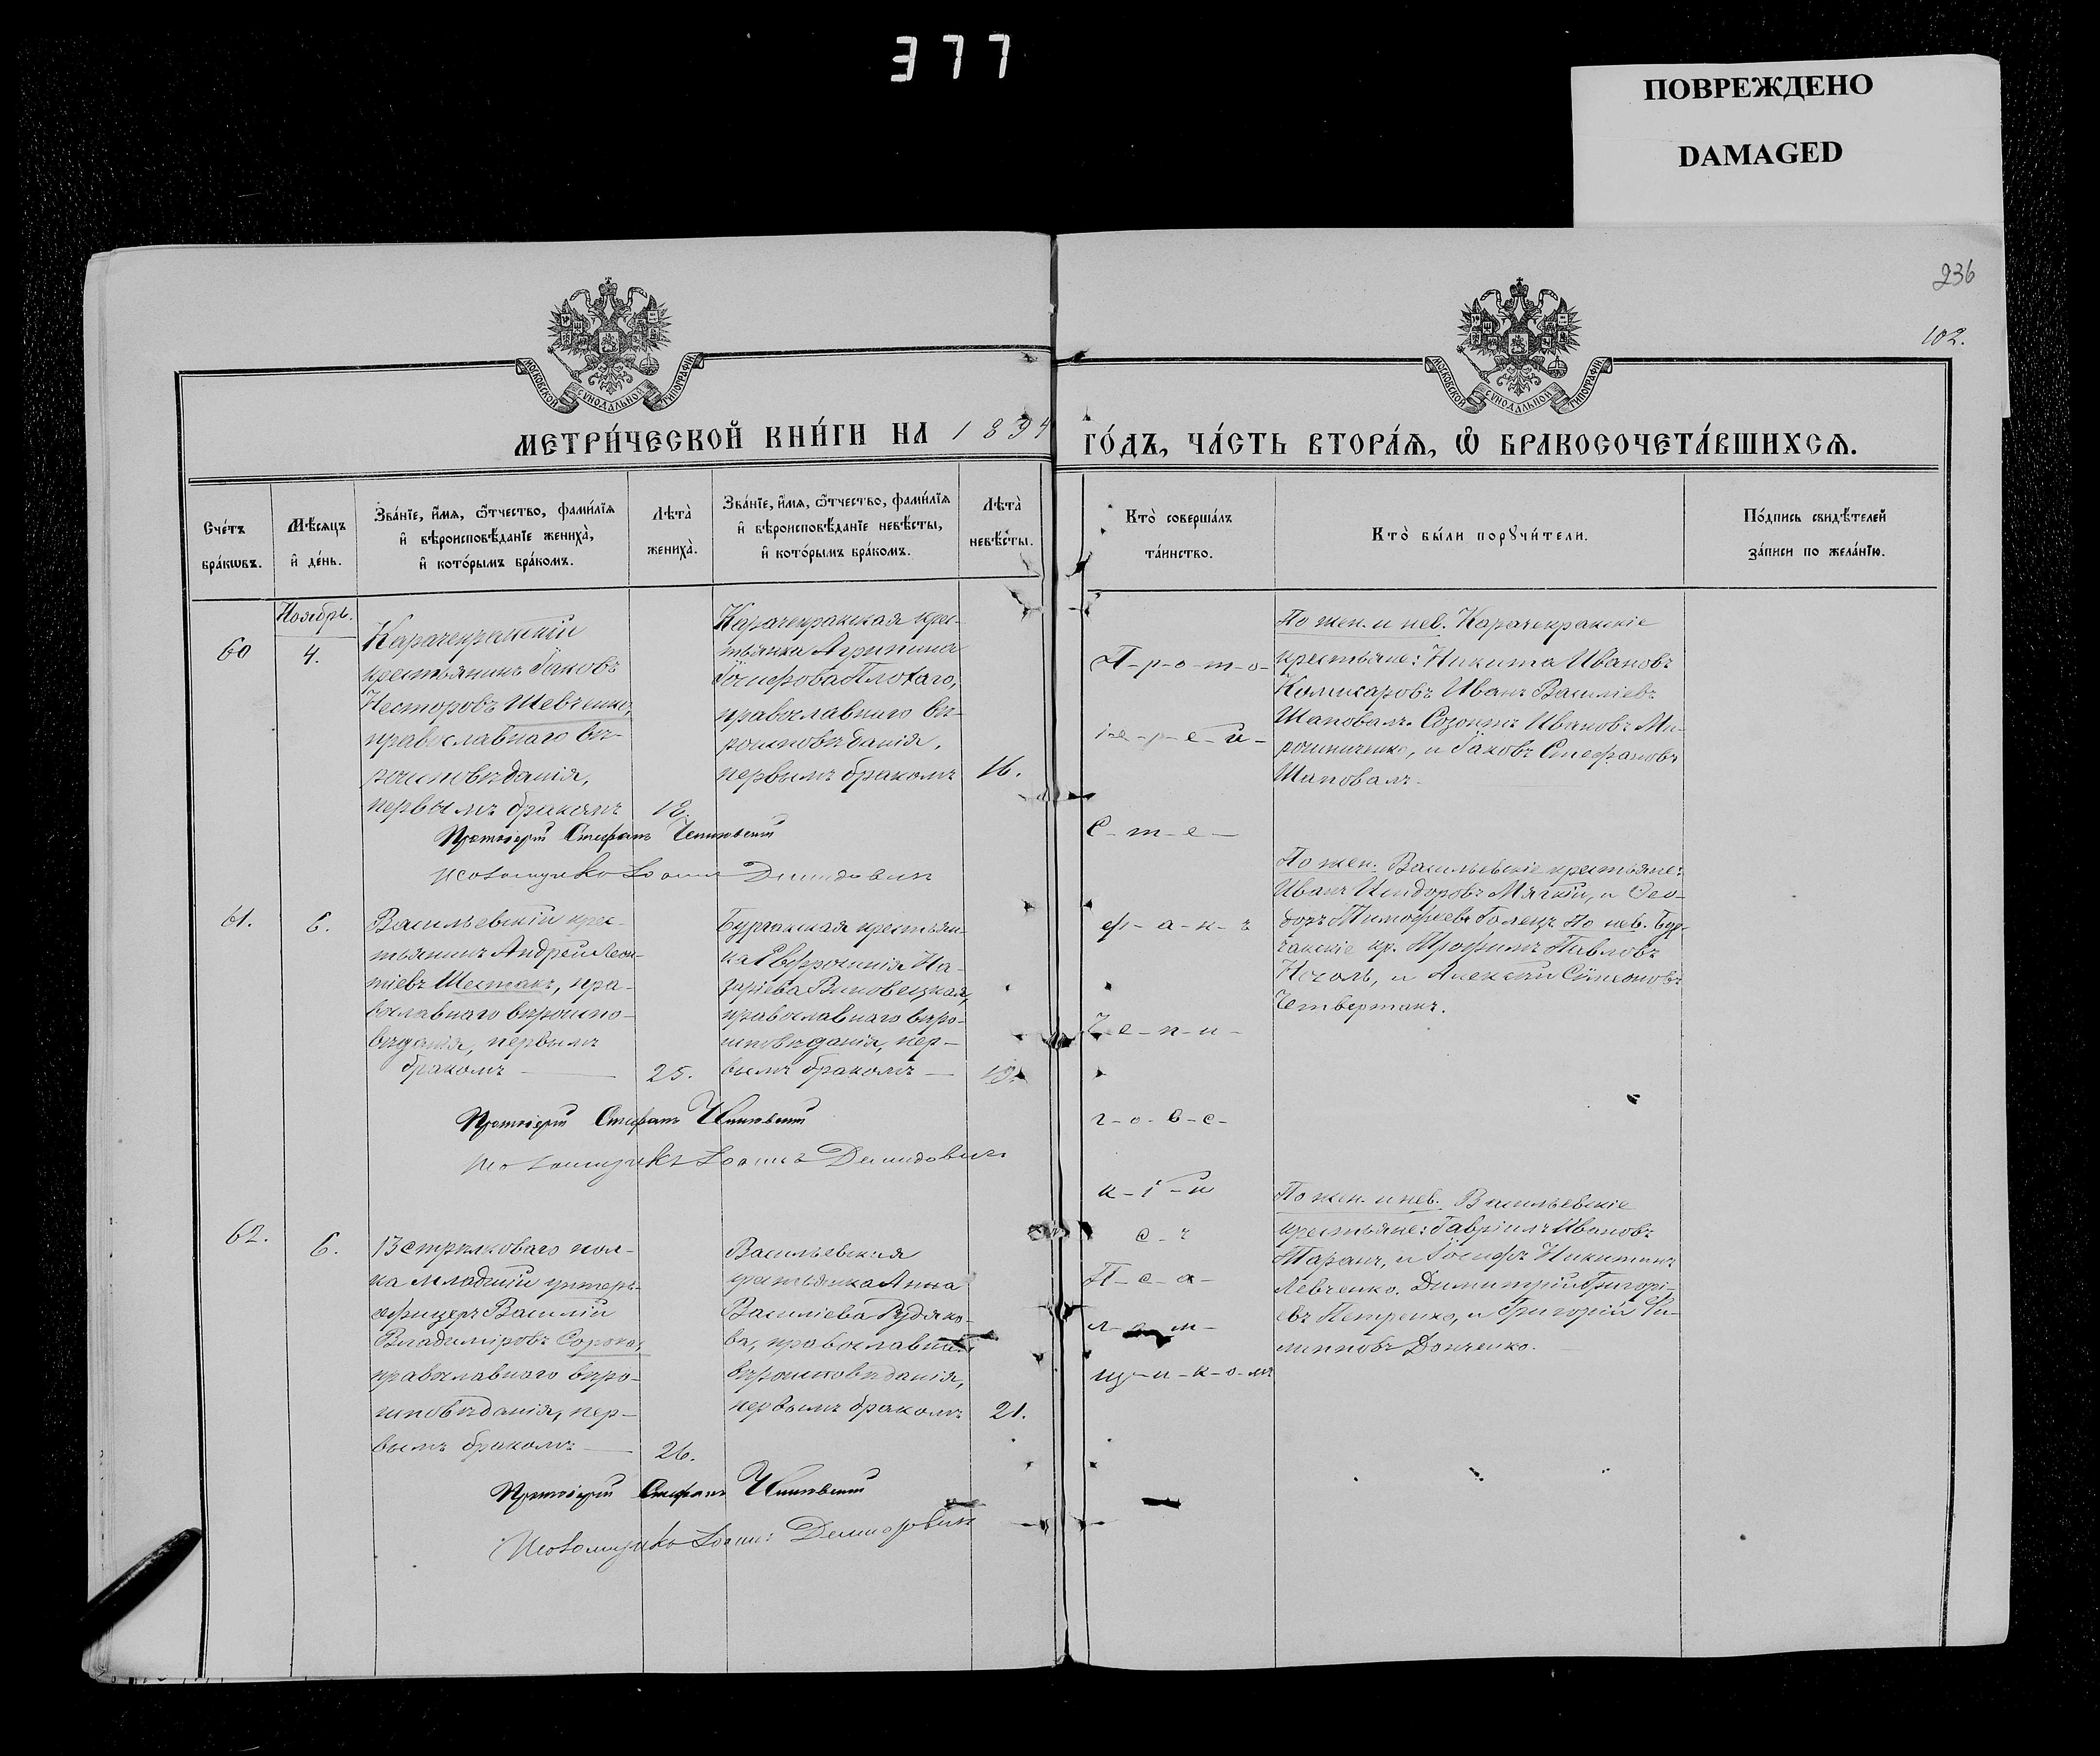 377
ПОВРЕЖДЕНО
DAMAGED
236
102.
МОСКОВСКОЙ СѴНОДАЛЬНОЙ ТИПОГРАФІИ
МОСКОВСКОЙ СѴНОДАЛЬНОЙ ТИПОГРАФІИ
МЕТРИ́ЧЕСКОЙ КНИ́ГИ НА 1894 ГО́ДЪ, ЧА́СТЬ ВТОРА́Ѧ, Ѡ҆ БРАКОСОЧЕТА́ВШИХСѦ.
Сче́тъ бра́кѡвъ.
Мѣ́сяцъ и҆ де́нь.
Зва́нїе, и҆́мя, ѻ҆́тчество, фами́лїя
и҆ вѣроисповѣ́данїе жениха̀,
и҆ кото́рымъ бра́комъ.
Лѣта̀ жениха̀.
Зва́нїе, и҆́мя, ѻ҆́тчество, фами́лїя
и҆ вѣроисповѣ́данїе невѣ́сты,
и҆ кото́рымъ бра́комъ.
Лѣта̀ невѣ́сты.
Кто̀ соверша́лъ
та́инство.
Кто̀ бы́ли порꙋчи́тели.
По́дпись свидѣ́телей
за́писи по жела́нїю.
Ноябрь.
60
4.
Карачекракскій
крестьянинъ Іаковъ
Несторовъ Шевченко,
православнаго вѣ-
роисповѣданія,
первымъ бракомъ
18.
Карачекракская кре-
стьянка Агрипина
Іосифова Плохаго,
православнаго вѣ-
роисповѣданія,
первымъ бракомъ
16.
По жен. и нев. Карачекракскіе
крестьяне: Никита Ивановъ
Комисаровъ Иванъ Василіевъ
Шаповалъ. Созонтъ Ивановъ Ми-
рошниченко, и Іаковъ Стефановъ
Шаповалъ.
Протоіерей Стефанъ
Псаломщикъ Іоаннъ Демидовичъ
61.
6.
Васильевскій крес-
тьянинъ Андрей Леон-
тіевъ Шестакъ, пра-
вославнаго вѣроиспо-
вѣданія, первымъ
бракомъ
25.
Бурчакская крестьян-
ка Евфросинія На-
заріева Виновецкая,
православнаго вѣро-
исповѣданія, пер-
вымъ бракомъ
19.
По жен. Васильевскіе крестьяне:
Иванъ Исидоровъ Мягкій, и Ѳео-
доръ Тимофеевъ Голецъ По нев. Бур-
чакскіе кр. Трофимъ Павловъ
и Алексій Симеоновъ
Четвертакъ.
Протоіерей Стефанъ
Псаломщикъ Іоаннъ Демидовичъ
62.
6.
13 стрѣлковаго пол-
ка младшій унтеръ-
офицеръ Василій
Владиміровъ Сорока,
православнаго вѣро-
исповѣданія, пер-
вымъ бракомъ
26.
Васильевская
крестьянка Анна
Василіева Рудяко-
ва, православнаго
вѣроисповѣданія,
первымъ бракомъ
21.
По жен. и нев. Васильевскіе
крестьяне: Гавріилъ Ивановъ
Таранъ, и Іосифъ Никитинъ
Левченко. Димитрій Григорі-
евъ Петренко, и Григорій Фи-
липповъ Донченко.
Протоіерей Стефанъ
Псаломщикъ Іоаннъ Демидовичъ
П-р-о-т-о-
і-е-р-е-й-
С-т-е-
ф-а-н-ъ
Ч-е-п-и-
г-о-в-с-
к-і-й
с-ъ
П-с-а-
л-о-м-
щ-и-к-о-мъ